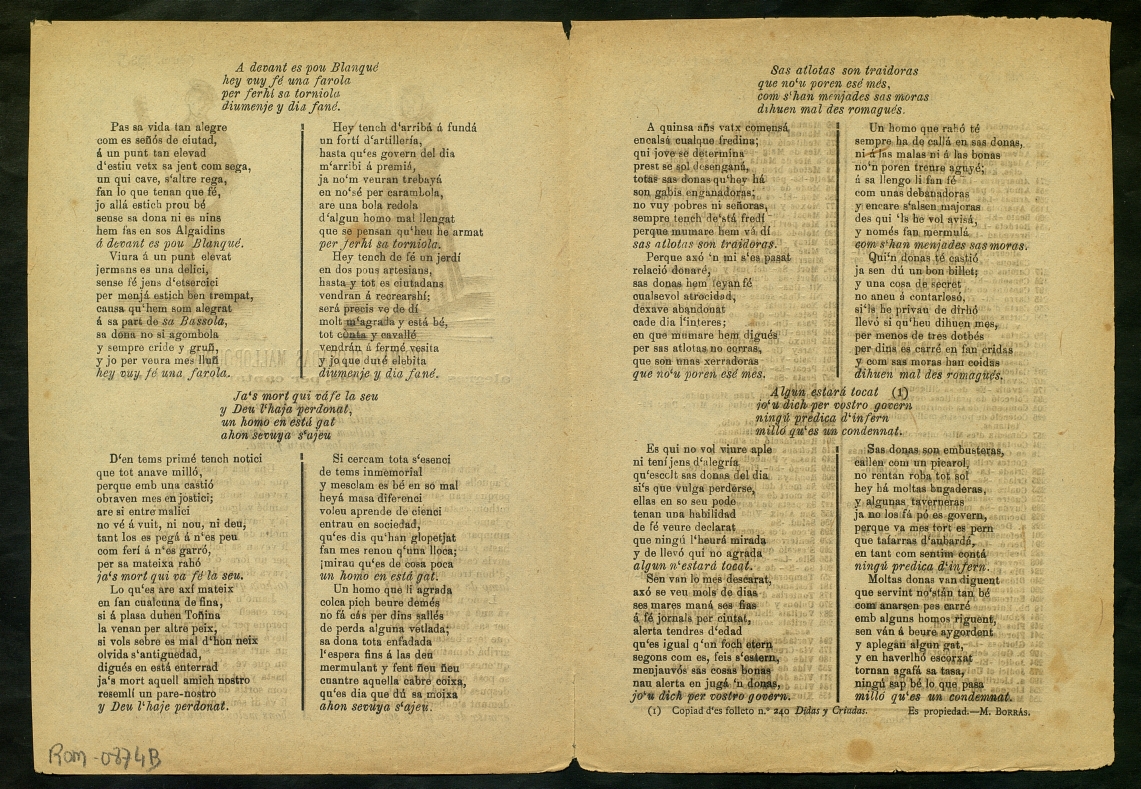 A devant es pou Blanqué
hey vuy fé una farola
per ferhí sa torniola
diumenje y dia fané.
Pas sa vida tan alegre
com es señós de ciutad,
á un punt tan elevad
d'estiu vetx sa jent com sega,
un qui cave, s'altre rega,
fan lo que tenan que fé,
jo allá estich prou bé
sense sa dona ni es nins
hem fas en sos Algaidins
á devant es pou Blanqué.
Viura á un punt elevat
jermans es una delici,
sense fé jens d'etsercici
per menjá estich ben trempat,
causa qu'hem som alegrat
á sa part de sa Bassola,
sa dona no si agombola
y sempre cride y gruñ,
y jo per veura mes lluñ
hey vuy fé una farola.
Hey tench d'arribá á fundá
un fortí d'artillería,
hasta qu'es govern del dia
m'arribi á premiá,
ja no'm veuran trebayá
en no'sé per carambola,
are una bola redola
d'algun homo mal llengat
que se pensan qu'heu he armat
per ferhí sa torniola.
Hey tench de fé un jerdí
en dos pous artesians,
hasta y tot es ciutadans
vendran á recrearshí;
será precis ve de dí
molt m'agrada y está bé,
tot conta y cavallé
vendrán á fermé vesita
y jo que duté elebita
diumenje y dia fané.
Ja's mort qui váfe la seu
y Deu l'haja perdonat,
un homo en está gat
ahon sevuya s'ajeu
D'en tems primé tench notici
que tot anave milló,
perque emb una castió
obraven mes en jostici;
are si entre malici
no vé á vuit, ni nou, ni deu,
tant los es pegá á n'es peu
com ferí á n'es garró,
per sa mateixa rahó
ja's mort qui va fé la seu.
Lo qu'es are axí mateix
en fan cualcuna de fina,
si á plasa duhen Toñina
la venan per altre peix,
si vols sobre es mal d'hon neix
olvida s'antiguedad,
digués en está enterrad
ja's mort aquell amich nostro
resemlí un pare-nostro
y Deu l'haje perdonat.
Si cercam tota s'esenci
de tems inmemorial
y mesclam es bé en so mal
heyá masa diferenci
voleu aprende de cienci
entrau en sociedad,
qu'es dia qu'han glopetjat
fan mes renou q'una lloca;
¡mirau qu'es de cosa poca
un homo en está gat.
Un homo que li agrada
colca pich beure demés
no fá cás per dins sallés
de perda alguna vetlada;
sa dona tota enfadada
l'espera fins á las deu
mermulant y fent ñeu ñeu
cuantre aquella cabre coixa,
qu'es dia que dú sa moixa
ahon sevuya s'ajeu.
Rom - 0874B
Sas atlotas son traidoras
que no'u poren esé més,
com s'han menjades sas moras
dihuen mal des romagués.
A quinsa añs vatx comensá
encalsá cualque fredina;
qui jove se determina
prest se sol desenganá,
totas sas donas qu'hey há
son gabis enganadoras;
no vuy pobres ni señoras,
sempre tench de'stá fredi
perque mumare hem vá dí
sas atlotas son traidoras.
Perque axó 'n mi s'es pasat
relació donaré,
sas donas hem feyan fé
cualsevol atrocidad,
dexave abandonat
cade dia l'interes;
en que mumare hem digués
per sas atlotas no corras,
que son unas xerradoras
que no'u poren esé mes.
Un homo que rahó té
sempre ha de callá en sas donas,
ni á las malas ni á las bonas
no'n poren trenre aguyé;
á sa llengo li fan fé
com unas debanadoras
y encare s'alsen majoras
des qui 'ls he vol avisá,
y només fan mermulá
com s'han menjades sas moras.
Qui'n donas té castió
ja sen dú un bon billet;
y una cosa de secret
no aneu á contarlosó,
si'ls he privau de dirhó
llevó si qu'heu dihuen mes,
per menos de tres dotbés
per dins es carré en fan cridas
y com sas moras han cuidas
dihuen mal des romagués.
Algun estará tocat (1)
jo'u dich per vostro govern
ningú predica d'infern
milló qu'es un condennat.
Es qui no vol viure aple
ni tení jens d'alegría
qu'escolt sas donas del dia
si's que vulga perderse,
ellas en so seu pode
tenan una habilidad
de fé veure declarat
que ningú l'heurá mirada
y de llevó qui no agrada
algun n'estará tocat.
Sen van lo mes descarat,
axó se veu mols de dias
ses mares maná ses fias
á fé jornals per ciutat,
alerta tendres d'edad
qu'es igual q'un foch etern
segons com es, feis s'estern,
menjauvós sas cosas bonas
nau alerta en jugá 'n donas,
jo'u dich per vostro govern.
Sas donas son embusteras,
callen com un picarol,
no rentan roba tot sol
hey há moltas bugaderas,
y algunas taverneras
ja no los fá pó es govern,
perque va mes tort es pern
que tafarras d'aubardé,
en tant com sentim contá
ningú predica d'infern.
Moltas donas van diguent
que servint no'stán tan bé
com anarsen pes carré
emb alguns homos riguent,
sen ván á beure aygordent
y aplegan algun gat,
y en haverlhó escorxat
tornan agafá sa tasa,
ningú sap bé lo que pasa
milló qu'es un condemnat.
(1) Copiad d'es folleto n.º 240 Didas y Criadas. Es propiedad.—M. BORRÁS.